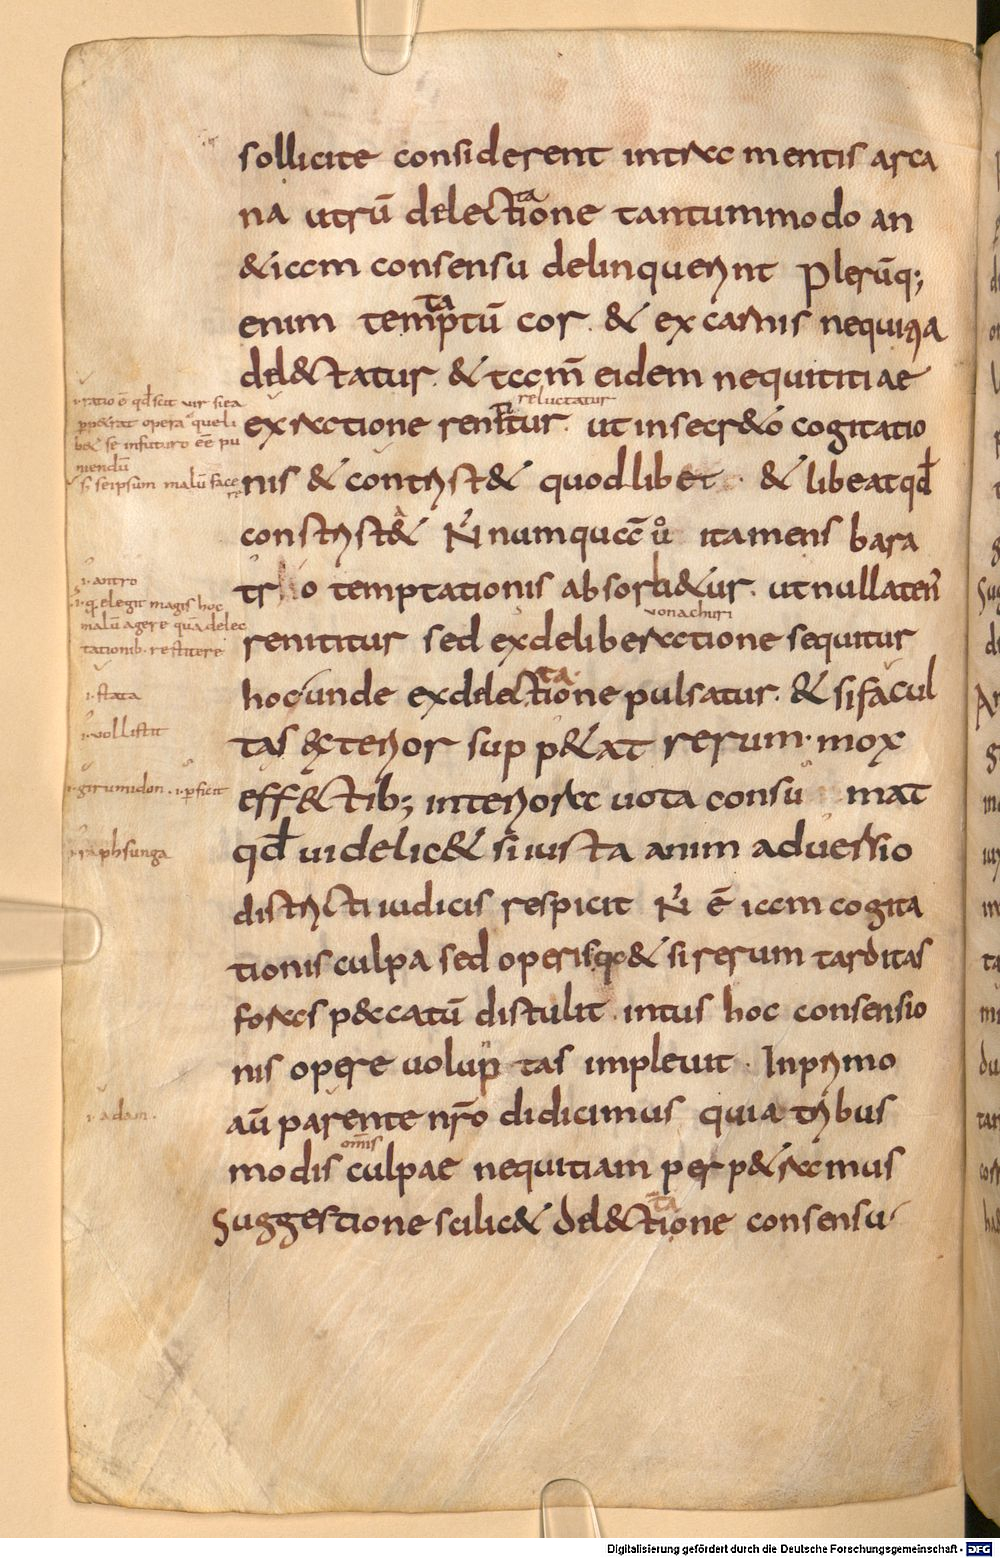 sollicite considerent intra mentis arca
na utrū delectatione tantummodo an
&iam consensu delinquerint Plerūq;
enim temptatū cor. & ex carnis nequitia
del&tatur. & tam̄ eidem nequititiae
reluctatur
ex ratione renititur. ut in secr&o cogitatio
nis & contrist& quod libet. & libeat qđ
constrist& N̄ numquā ů ita mens bara
trho temptationis absorb&ur. ut nullaten'
renititur sed ex deliberatione sequitur
hoc unde ex delectatione pulsatur. & si facul
tas exterior supp&at rerum. mox
eff&tib; interiora uota consu mat
qđ uidelic& si iusta animaduersio
districti iudicis respicit N̄ ē iam cogita
tionis culpa sed operis qa & si rerum tarditas
foras peccatū distulit. intus hoc consensio
nis opere uoluptas impleuit. In primo
aū parente nr̄o didicimus quia tribus
omīs
modis culpae nequitiam perp&ramus
Suggestione scilic& del&tatione consensu.
.i. ratio ē qđ scit uir si ea
pp&rat opera que li
b& se in futuro eē pu
niendū
s. seipsum malū face
re
.i. antro
.i. q. elegit magis hoc
malū agere quā delec
tationib. restitere
vonachuri
.i. stata
.i. vollistit
.i. girumidon. .i. pficit
.i. raphsunga
.i. adam.
Digitalisierung gefördert durch die Deutsche Forschungsgemeinschaft - DFG